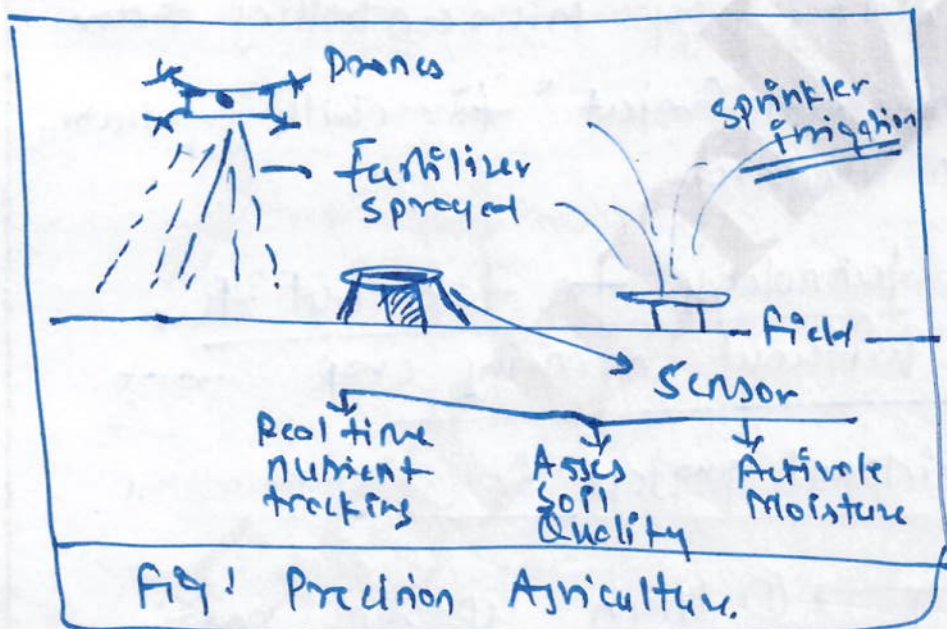 Drones
Sprinkler
irrigation
Fertilizer
sprayed
Field
Sensor
Real time
nutrient
tracking
Asses
Soil
Quality
Activate
Moisture
Fig: Precision Agriculture.